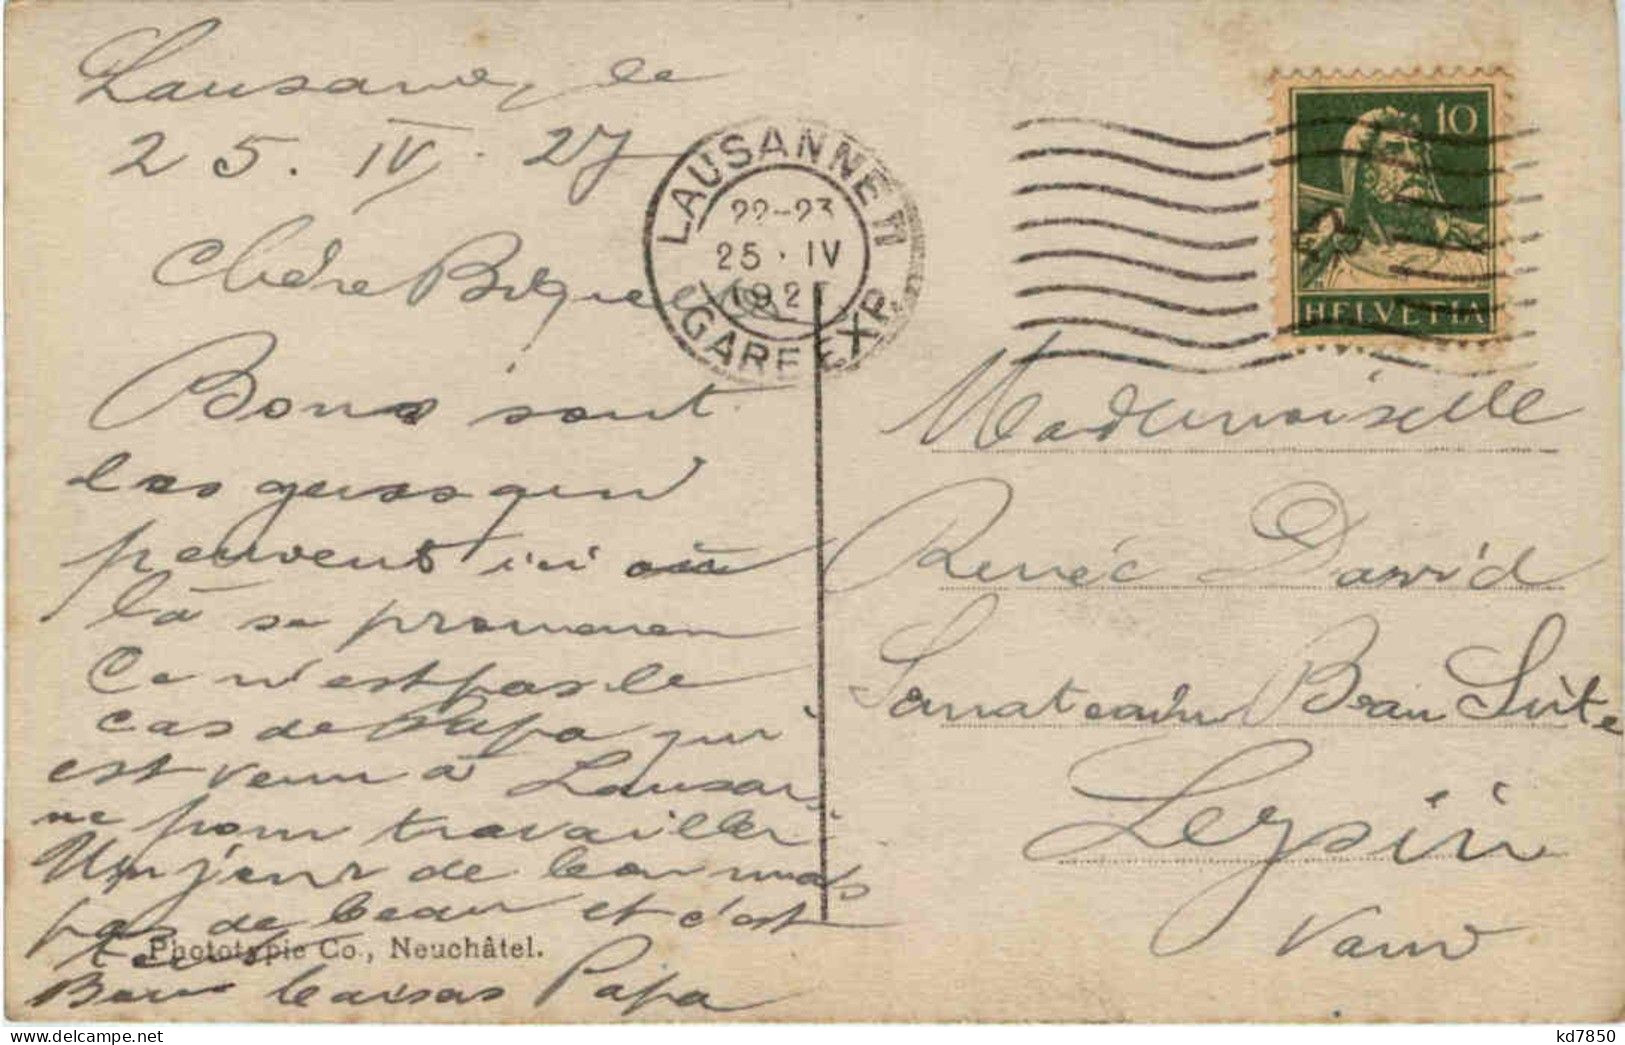 Lausanne, le
25. IV. 27
Chère
Bons sont
les gens qui
peuvent ici ou
là se promener
Ce n'est pas le
cas de Papa qui
est venu à Lausan-
ne pour travailler
Un jour de bon mais
pas de beau et c'est
tout
Bons baisers Papa
Phototypie Co., Neuchâtel.
LAUSANNE II
22-23
25 · IV
192
GARE EXP.
10
HELVETIA
Mademoiselle
Renée David
Sanatorium Beau Site
Leysin
Vaud
kd7850